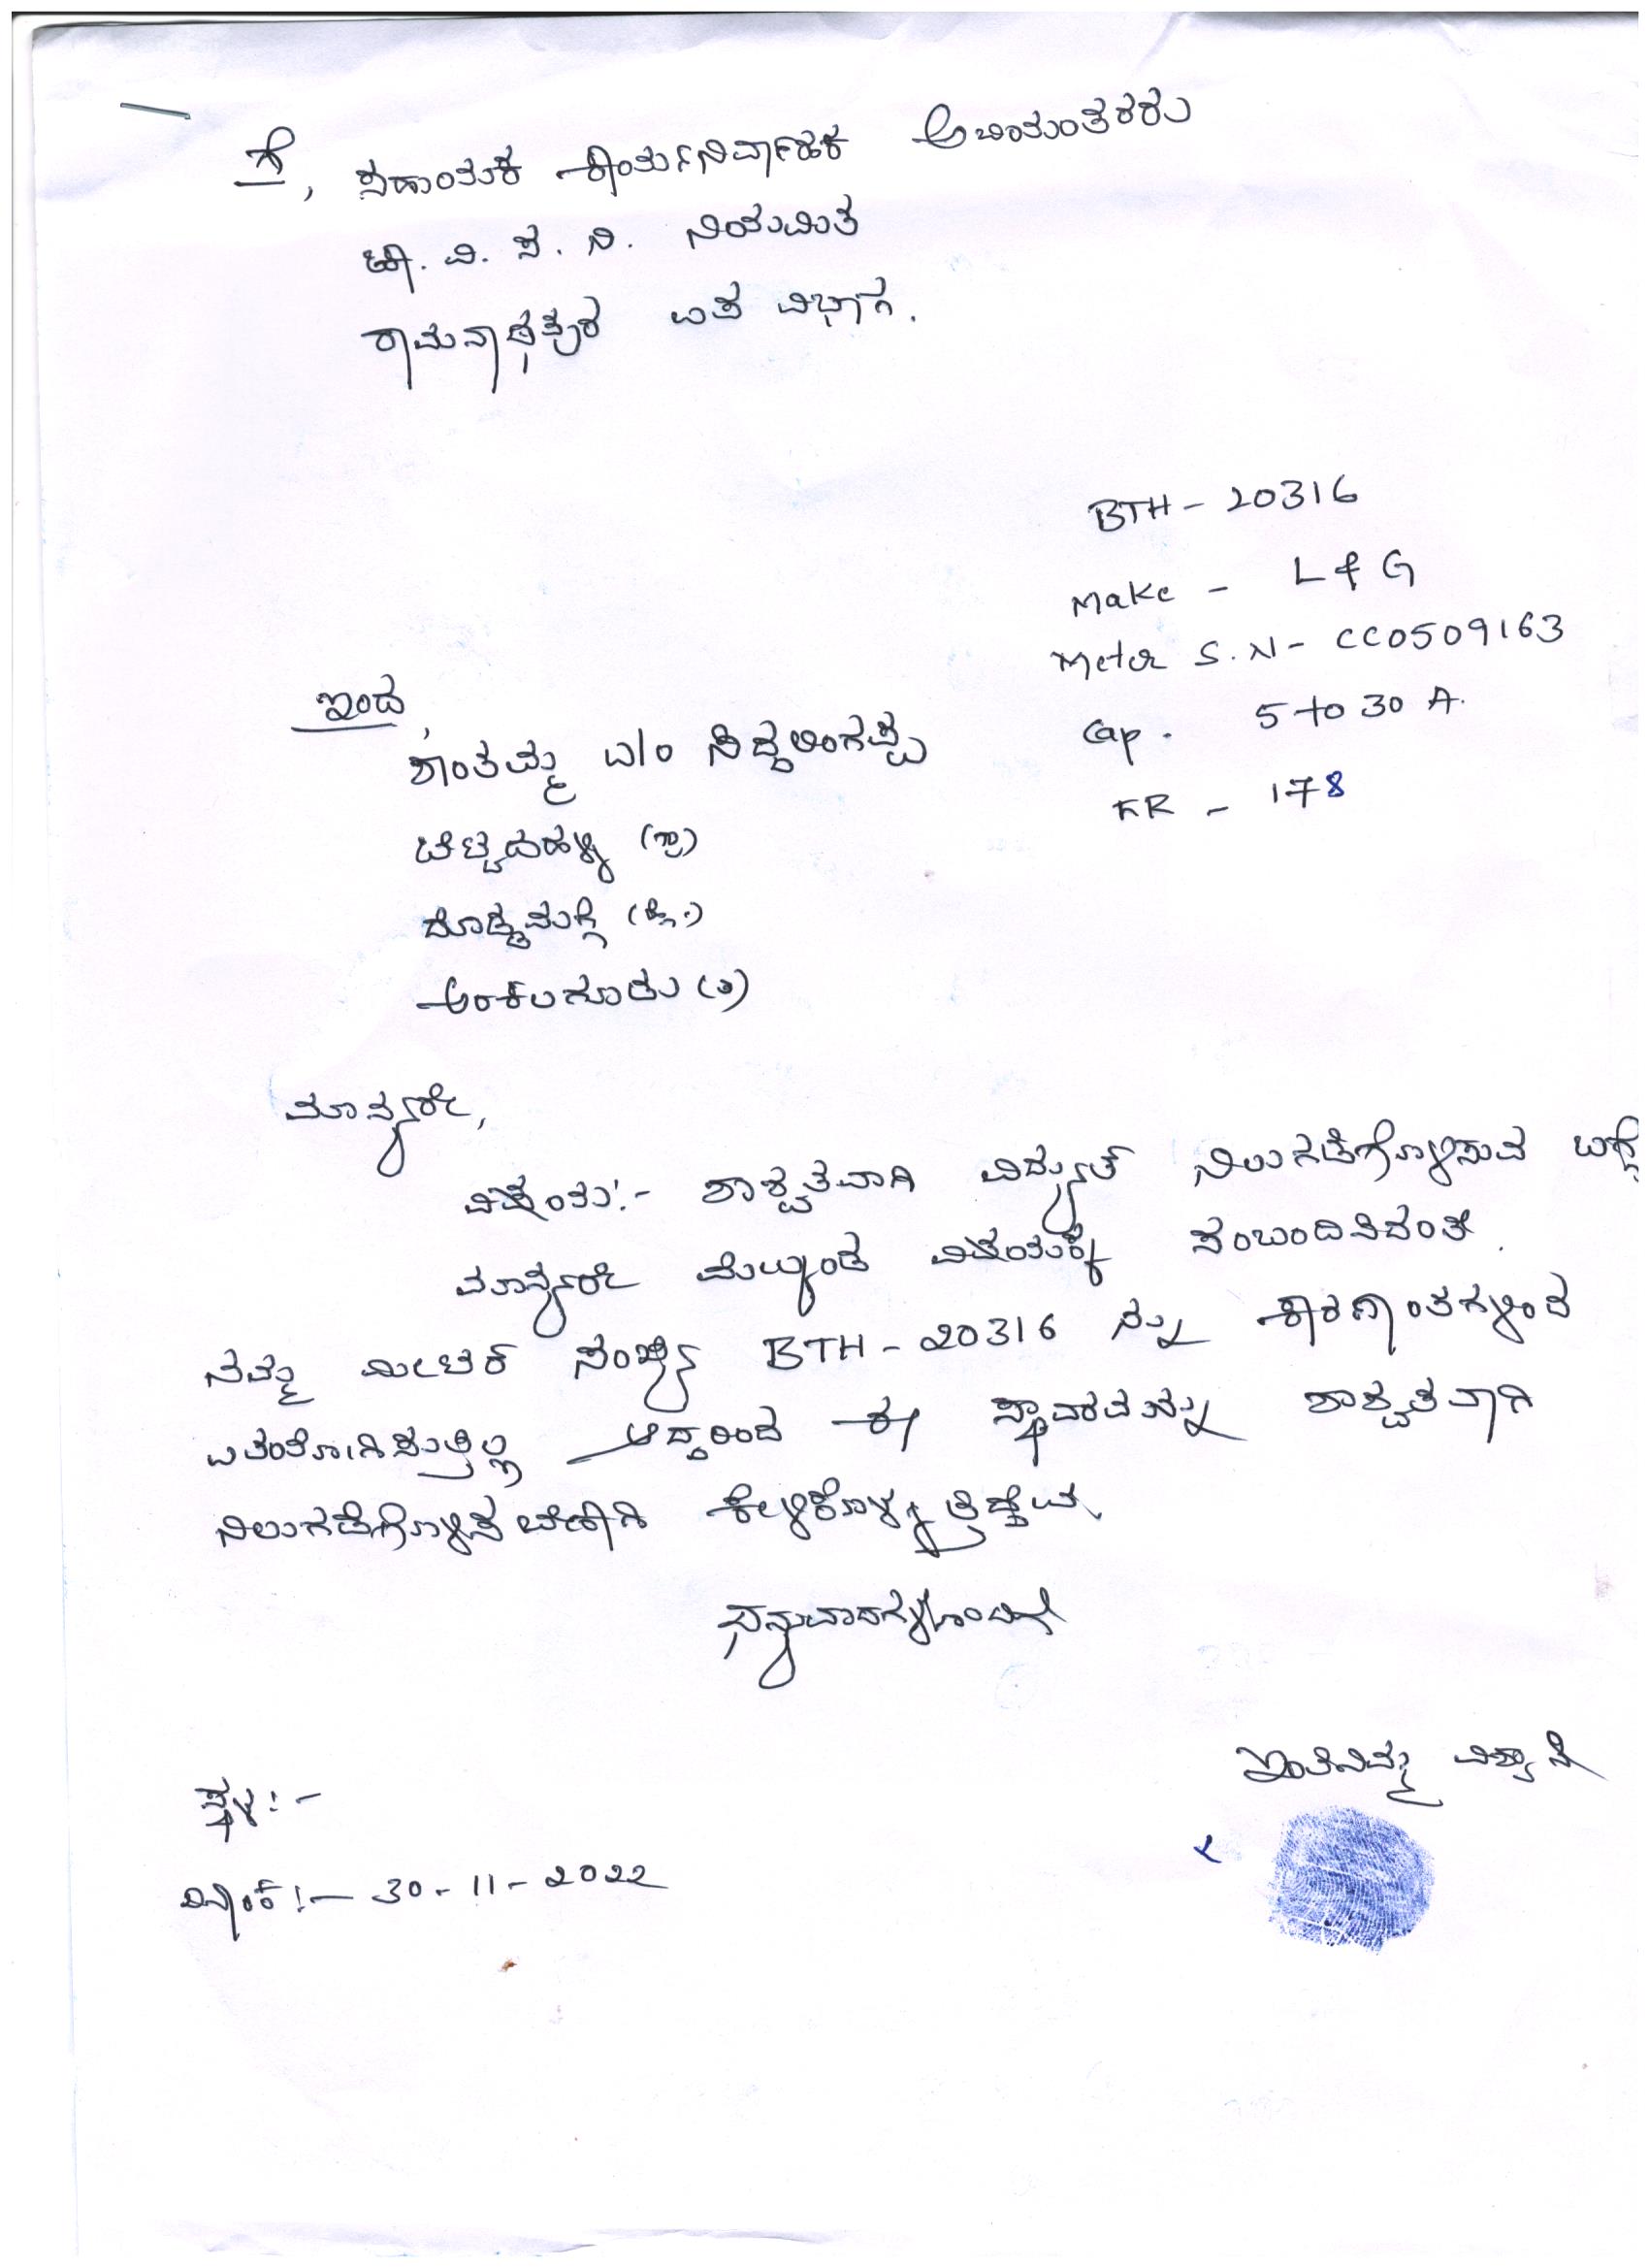 ಗೆ, ಸಹಾಯಕ ಕಾರ್ಯನಿರ್ವಾಹಕ ಅಬಿಯಂತರರು
ಚಾ. ವಿ. ಸ. ನಿ. ನಿಯಮಿತ
ರಾಮನಾಥಪುರ ಉಪ ವಿಭಾಗ.
BTH - 20316
Make - L & G
Meter S.N - CC0509163
Cap. 5 to 30 A.
FR - 178
ಇಂದ,
ಶಾಂತಮ್ಮ ಬಿ/ಂ ಸಿದ್ದಲಿಂಗಪ್ಪ
ಬೆಟ್ಟದಹಳ್ಳಿ (ಗ್ರಾ)
ದೊಡ್ಡಮಗ್ಗೆ (ಹೋ.)
ಅರಕಲಗೂಡು (ತಾ)
ಮಾನ್ಯರೇ,
ವಿಷಯ:- ಶಾಶ್ವತವಾಗಿ ವಿದ್ಯುತ್ ನಿಲುಗಡೆಗೊಳಿಸುವ ಬಗ್ಗೆ
ಮಾನ್ಯರೇ ಮೇಲ್ಕಂಡ ವಿಷಯಕ್ಕೆ ಸಂಬಂದಿಸಿದಂತೆ.
ನಮ್ಮ ಮೀಟರ್ ಸಂಖ್ಯೆ BTH - 20316 ನ್ನು ಕಾರಣಾಂತಗಳಿಂದ
ಉಪಯೋಗಿಸುತ್ತಿಲ್ಲ ಆದ್ದರಿಂದ ಈ ಸ್ಥಾವರವನ್ನು ಶಾಶ್ವತವಾಗಿ
ನಿಲುಗಡೆಗೊಳಿಸಬೇಕಾಗಿ ಕೇಳಿಕೊಳ್ಳುತ್ತಿದ್ದೇವೆ.
ಧನ್ಯವಾದಗಳೊಂದಿಗೆ
ಇಂತಿನಿಮ್ಮ ವಿಶ್ವಾಸಿ
ಸ್ಥಳ:-
ದಿನಾಂಕ:- 30-11-2022